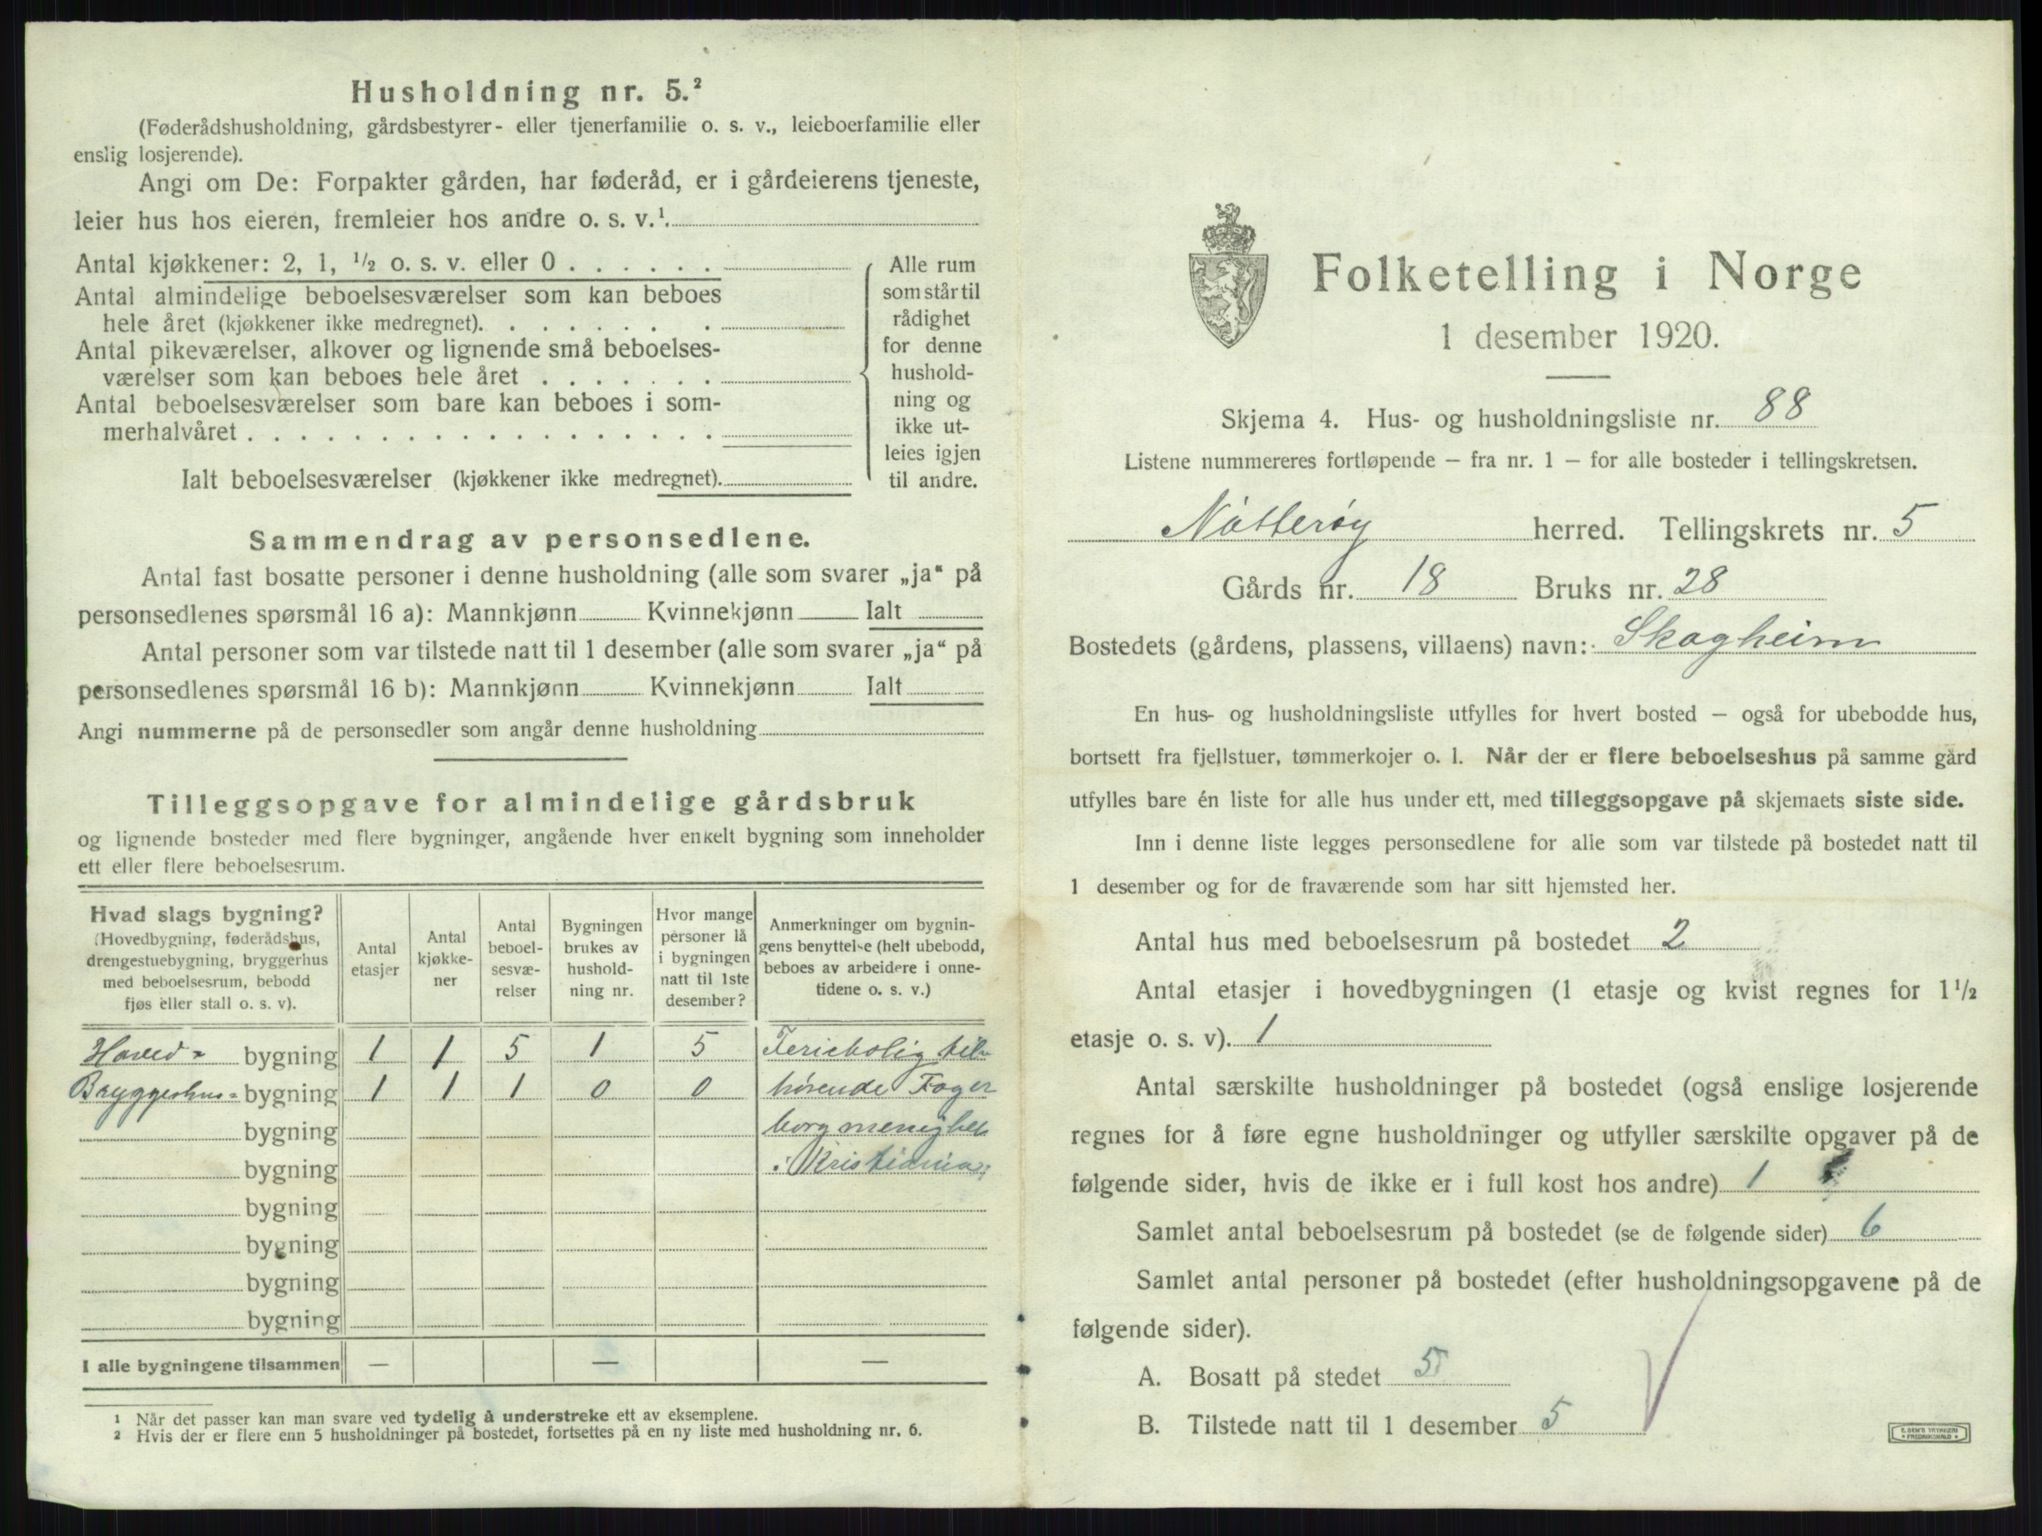 Husholdning nr. 5.²
(Føderådshusholdning, gårdsbestyrer- eller tjenerfamilie o. s. v., leieboerfamilie eller
enslig losjerende).
Angi om De: Forpakter gården, har føderåd, er i gårdeierens tjeneste,
leier hus hos eieren, fremleier hos andre o. s. v.¹
Antal kjøkkener: 2, 1, ½ o. s. v. eller 0 . . . . . .
Antal almindelige beboelsesværelser som kan beboes
hele året (kjøkkener ikke medregnet). . . . . . . .
Antal pikeværelser, alkover og lignende små beboelses-
værelser som kan beboes hele året . . . . . . .
Antal beboelsesværelser som bare kan beboes i som-
merhalvåret . . . . . . . . . . . . . . . . . .
Ialt beboelsesværelser (kjøkkener ikke medregnet).
Alle rum
som står til
rådighet
for denne
hushold-
ning og
ikke ut-
leies igjen
til andre.
Sammendrag av personsedlene.
Antal fast bosatte personer i denne husholdning (alle som svarer „ja“ på
personsedlenes spørsmål 16 a): Mannkjønn Kvinnekjønn Ialt
Antal personer som var tilstede natt til 1 desember (alle som svarer „ja“ på
personsedlenes spørsmål 16 b): Mannkjønn Kvinnekjønn Ialt
Angi nummerne på de personsedler som angår denne husholdning
Tilleggsopgave for almindelige gårdsbruk
og lignende bosteder med flere bygninger, angående hver enkelt bygning som inneholder
ett eller flere beboelsesrum.
Hvad slags bygning?
(Hovedbygning, føderådshus,
drengestuebygning, bryggerhus
med beboelsesrum, bebodd
fjøs eller stall o. s. v).
Antal
etasjer
Antal
kjøkke-
ner
Antal
beboel-
sesvæ-
relser
Bygningen
brukes av
hushold-
ning nr.
Hvor mange
personer lå
i bygningen
natt til 1ste
desember?
Anmerkninger om bygnin-
gens benyttelse (helt ubebodd,
beboes av arbeidere i onne-
tidene o. s. v.)
Hoved- bygning 1 1 5 1 5 Feriebolig til-
Bryggerhus- bygning 1 1 1 0 0 hørende Fager
bygning borg menighet
bygning i Kristiania;
bygning
bygning
bygning
bygning
I alle bygningene tilsammen — — —
¹ Når det passer kan man svare ved tydelig å understreke ett av eksemplene.
² Hvis der er flere enn 5 husholdninger på bostedet, fortsettes på en ny liste med husholdning nr. 6.
Folketelling i Norge
1 desember 1920.
Skjema 4. Hus- og husholdningsliste nr. 88
Listene nummereres fortløpende – fra nr. 1 – for alle bosteder i tellingskretsen.
Nøtterøy herred. Tellingskrets nr. 5
Gårds nr. 18 Bruks nr. 28
Bostedets (gårdens, plassens, villaens) navn: Skogheim
En hus- og husholdningsliste utfylles for hvert bosted – også for ubebodde hus,
bortsett fra fjellstuer, tømmerkojer o. l. Når der er flere beboelseshus på samme gård
utfylles bare én liste for alle hus under ett, med tilleggsopgave på skjemaets siste side.
Inn i denne liste legges personsedlene for alle som var tilstede på bostedet natt til
1 desember og for de fraværende som har sitt hjemsted her.
Antal hus med beboelsesrum på bostedet 2
Antal etasjer i hovedbygningen (1 etasje og kvist regnes for 1½
etasje o. s. v). 1
Antal særskilte husholdninger på bostedet (også enslige losjerende
regnes for å føre egne husholdninger og utfyller særskilte opgaver på de
følgende sider, hvis de ikke er i full kost hos andre) 1
Samlet antal beboelsesrum på bostedet (se de følgende sider) 6
Samlet antal personer på bostedet (efter husholdningsopgavene på de
følgende sider).
A. Bosatt på stedet 5
B. Tilstede natt til 1 desember 5